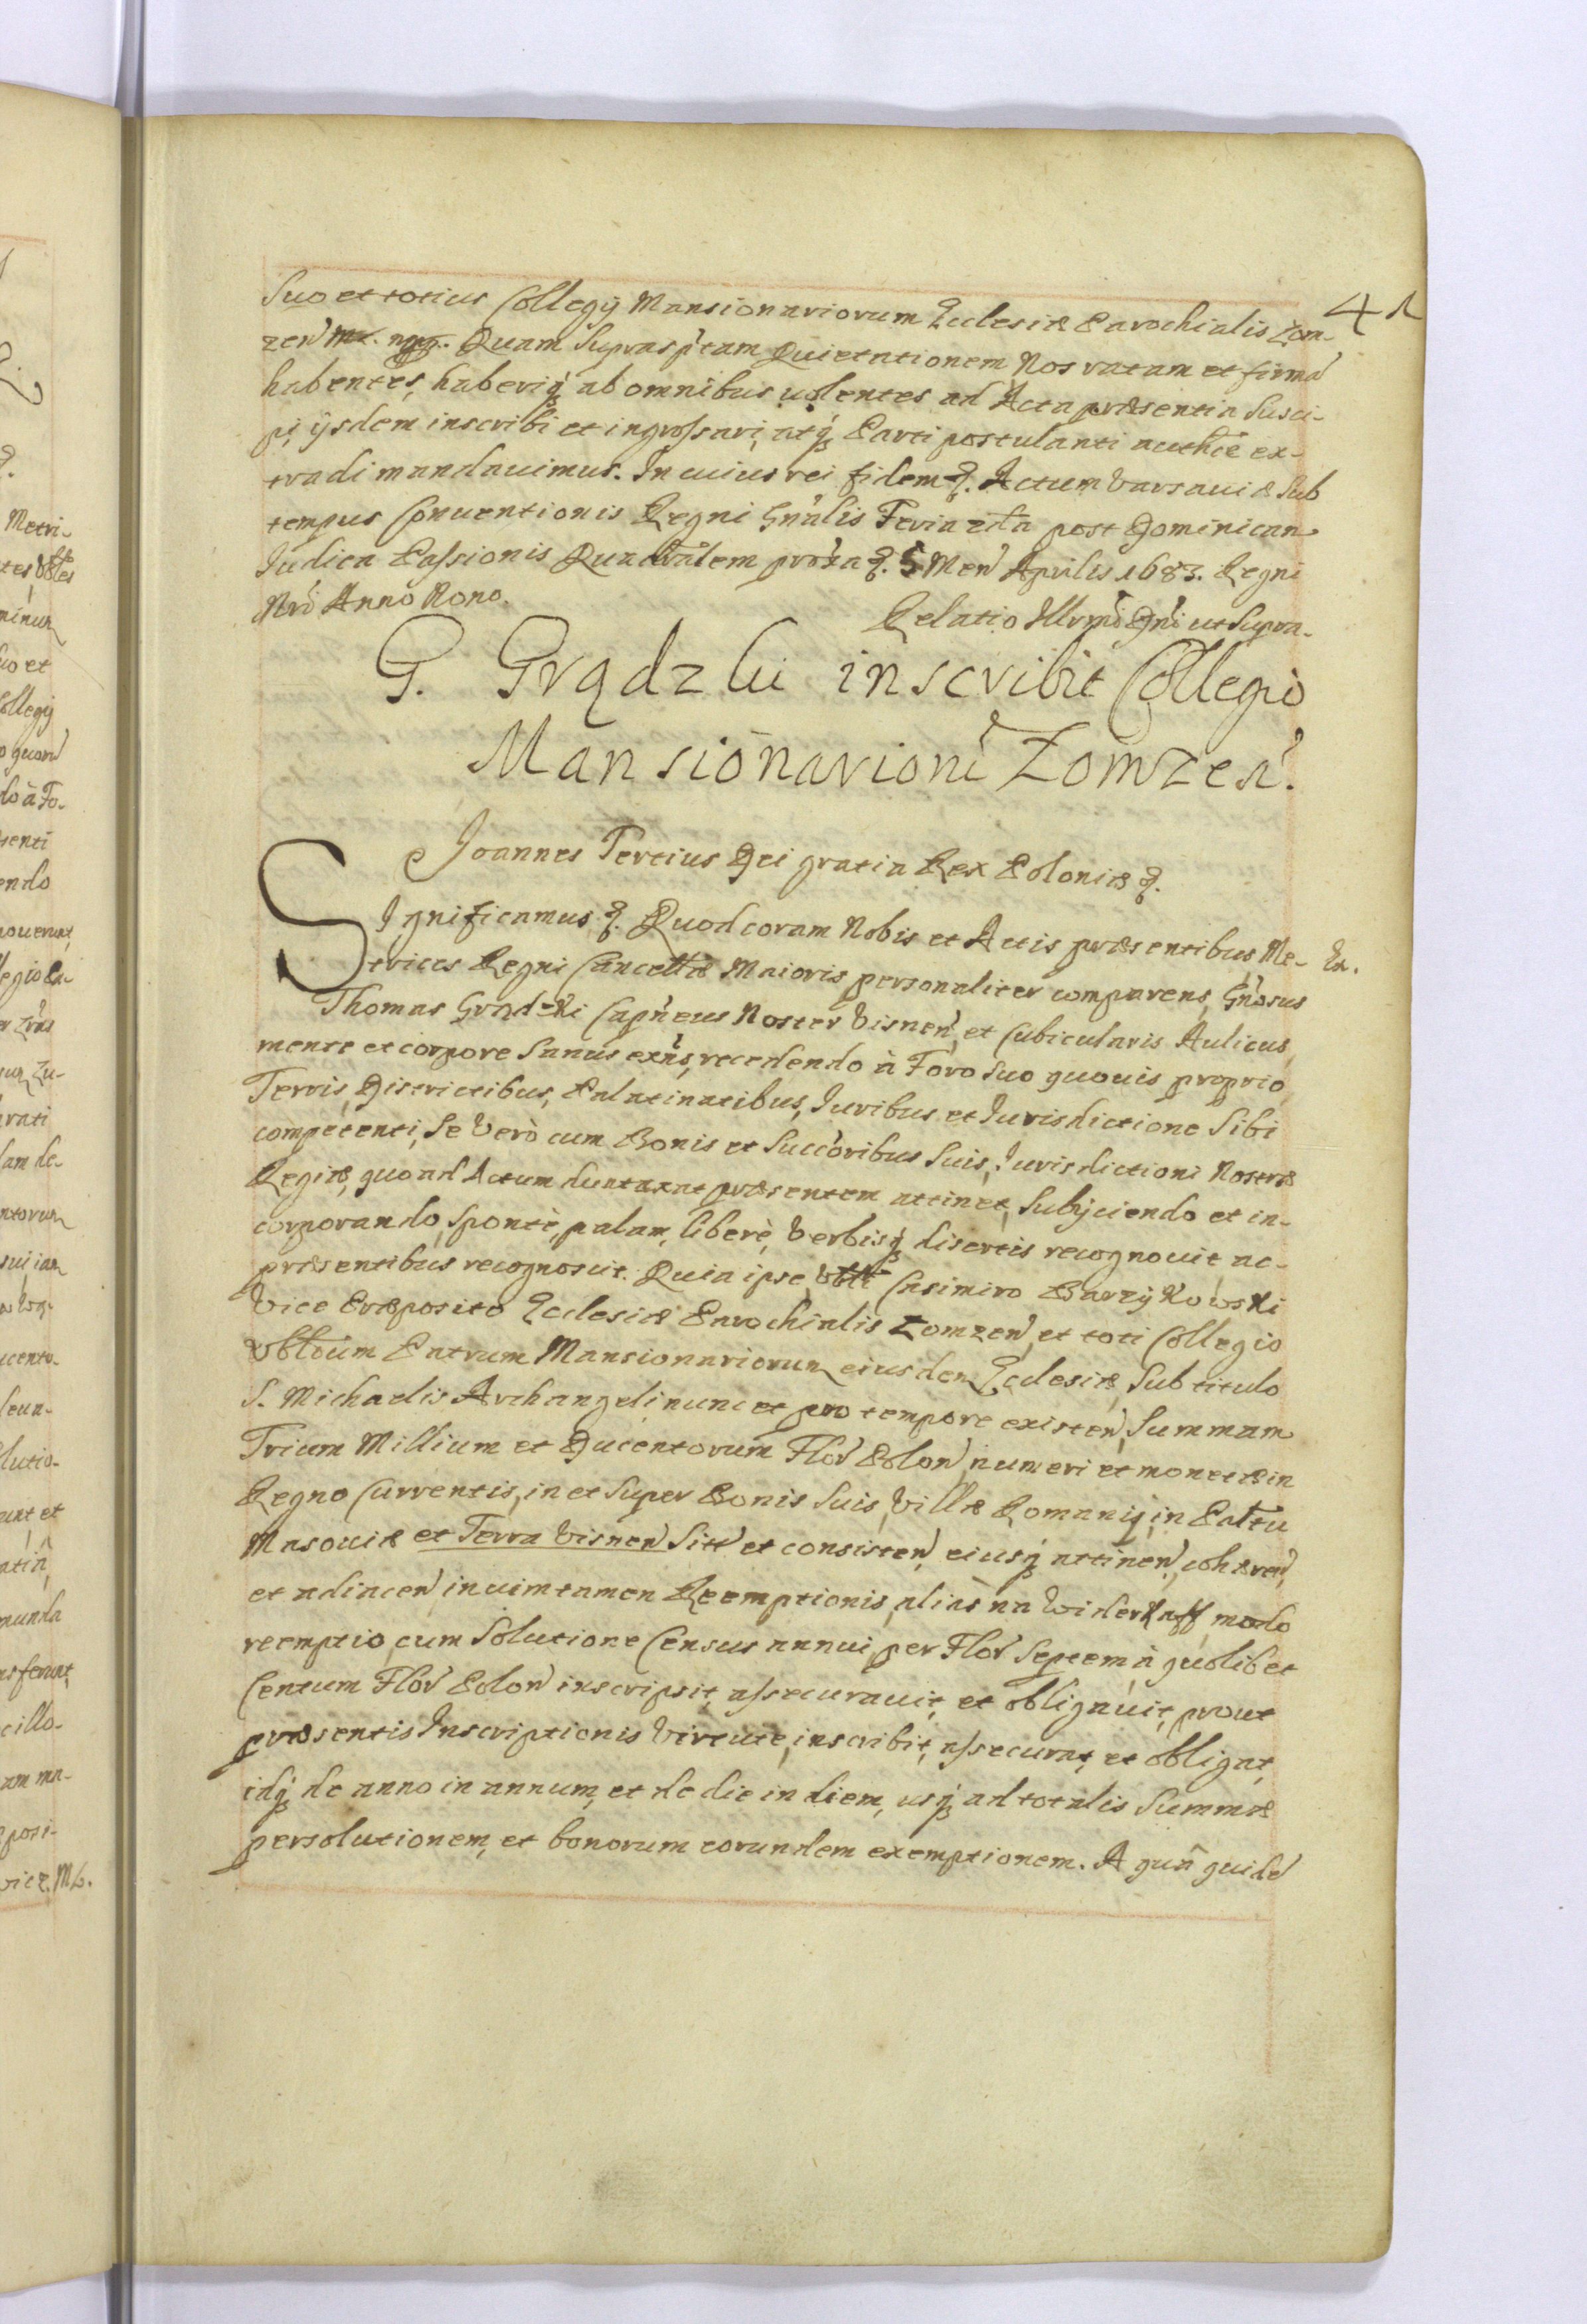 41
Suo et totius Collegij Mansionariorum Ecclesiæ Parochialis Zom-
zeń Quam Suprasptam Quietationem Nos ratam et firmã
habentes, haberiq́ ab omnibus volentes ad Acta præsentia Susci-
pi, ijsdem inscribi et ingrossari, atq́ Parti postulanti authce ex-
tradi mandauimus. In cuius rei fidem &. Actum Varsauiæ Sub
tempus Conuentionis Regni Gńalis Feria 2da post Dominicam
Iudica Passionis Quadralem proxa &. 5 Meń Aprilis 1683. Regni
Nrí Anno Nono.
Relatio Illrmí Dńi ut Supra.
G. Grądzki inscribit Collegio
Mansionarioni Zomzeń.
Joannes Tertius Dei gratia Rex Poloniæ &.
Significamus &. Quod coram Nobis et Actis præsentibus, Me-
trices Regni Cancellæ Maioris personaliter comparens, Gńosus
Thomas Grądzki Capńeus Noster Visneń, et Cubicularis Aulicus,
mente et corpore Sanus exńs, recedendo à Foro Suo quouis proprio,
Terris, Districtibus, Palatinatibus, Iuribus et Iurisdictione Sibi
competenti, Se Verò cum Bonis et Succoribus Suis, Iurisdictioni Nostræ
Regiæ, quoad Actum duntaxat præsentem attinet, Subijciendo et in-
corporando, Spontè, palam, liberè, Verbisq́ disertis recognouit ac
præsentibus recognoscit. Quia ipse, Casimiro Barzÿkowski
Vice Præposito Ecclesiæ Parochialis Zomzeń, et toti Collegio
Vbłium Patrum Mansionariorum eiusdem Ecclesiæ, Sub titulo
S. Michaelis Archangeli, nunc et pro tempore existeń, Summam
Trium Millium et Ducentorum Flor Poloń, numeri et monetæ in
Regno Currentis, in et Super Bonis Suis, Villæ Romanij, in Pałtu
Masouiæ et Terra Visneń Sitt et consisteń, eiusq́ attineń, cohæreń,
et adiaceń in vim tamen Reemptionis, aliàs na Widerkaff, modo
reemptio, cum Solutione Census annui, per Flor Septem à quolibet
Centum Flor Poloń inscripsit, assecurauit, et obligauit, prout
præsentis Inscriptionis Virtute, inscribit, assecurat, et obligat,
idq́ de anno in annum, et de die in diem, usq́ ad totalis Summæ
persolutionem, et bonorum eorundem exemptionem. A quã quidẽ